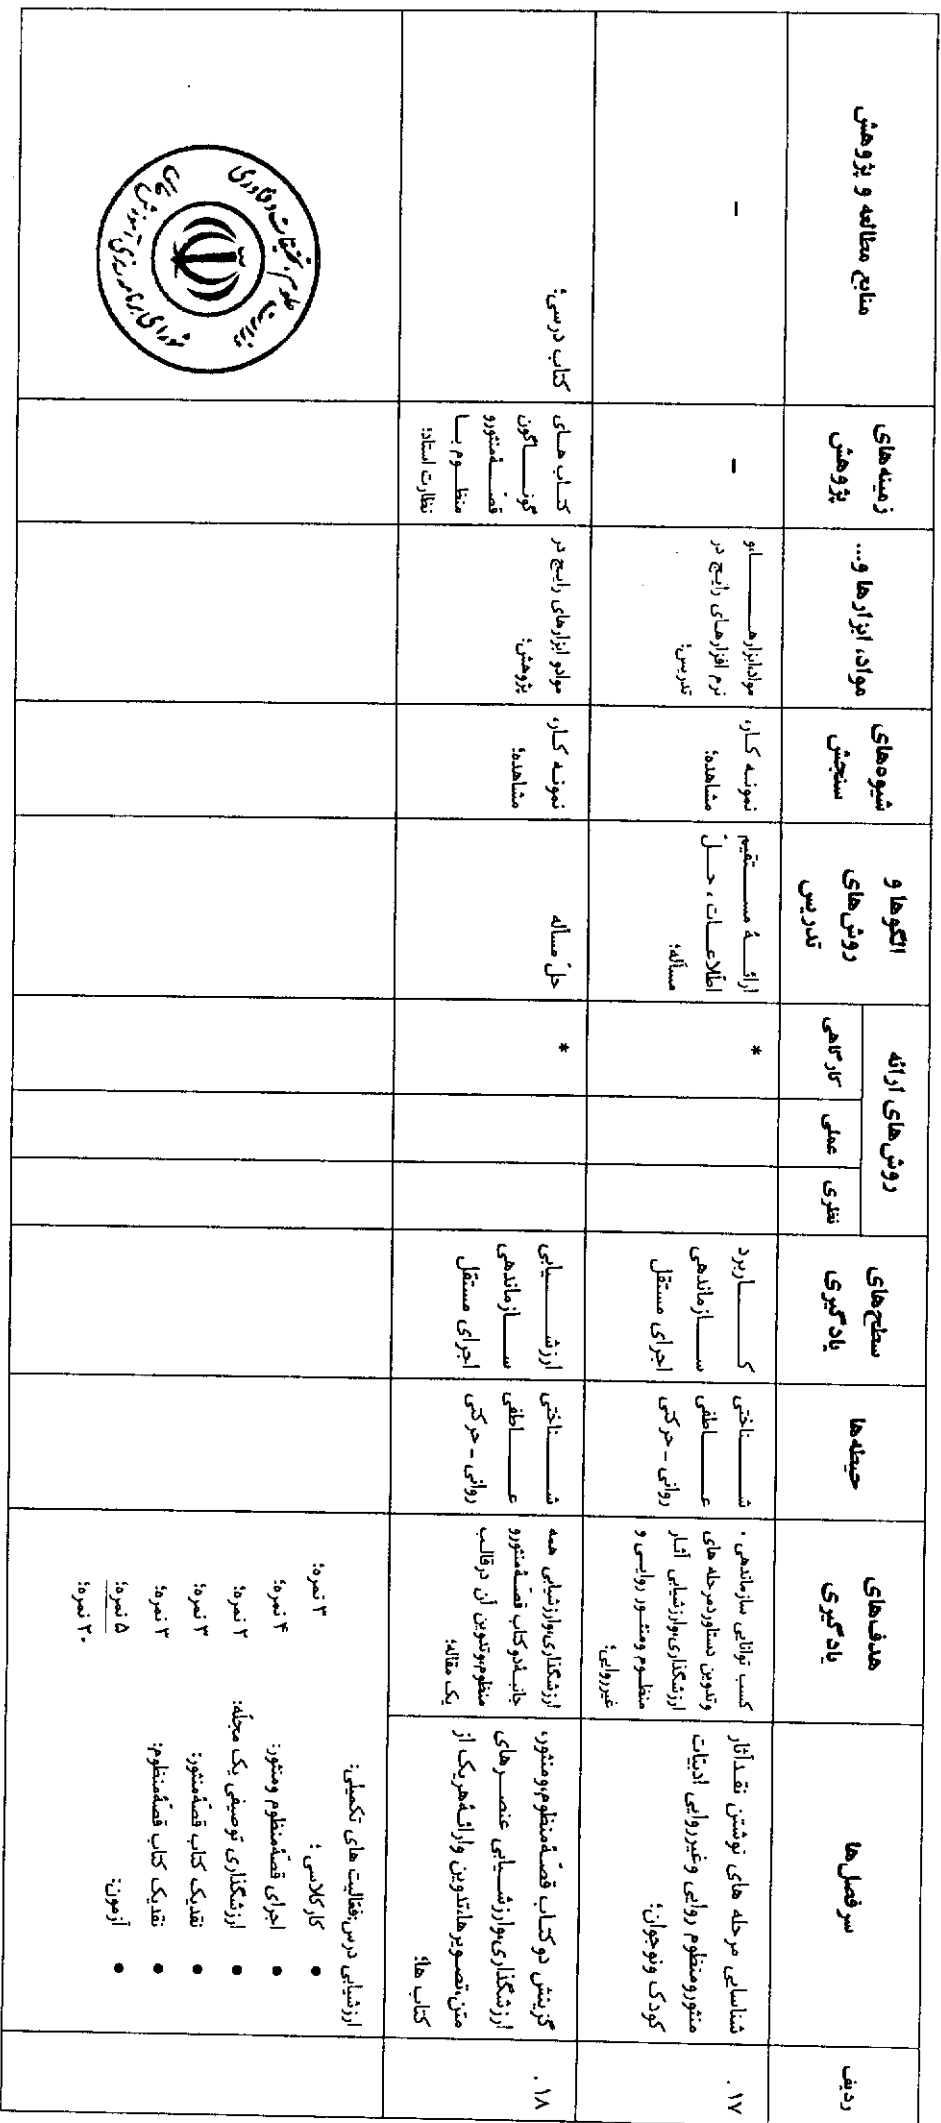 ردیف
سرفصل‌ها
هدف‌های
یادگیری
حیطه‌ها
سطح‌های
یادگیری
روش‌های ارائه
نظری
عملی
کارگاهی
الگوها و
روش‌های
تدریس
شیوه‌های
سنجش
مواد، ابزارها و...
زمینه‌های
پژوهش
منابع مطالعه و پژوهش
۱۷ .
شناسایی مرحله های نوشتن نقدآثار
منثورومنظوم روایی وغیرروایی ادبیات
کودک ونوجوان؛
کسب توانایی سازماندهی ،
وتدوین دستاوردمرحله های
ارزشگذاری‌وارزشیابی آثار
منظوم ومنثور روایی و
غیرروایی؛
شناختی
عاطفی
روانی - حرکتی
کاربرد
سازماندهی
اجرای مستقل
*
ارائۀ مستقیم
اطّلاعات، حلّ
مسأله؛
نمونه کار،
مشاهده؛
مواد،ابزارهاو
نرم افزارهای رایج در
تدریس؛
–
–
۱۸ .
گزینش دوکتاب قصّۀمنظوم‌ومنثور،
ارزشگذاری‌وارزشیابی عنصرهای
متن،تصویرها،تدوین وارائۀهریک از
کتاب ها؛
ارزشگذاری‌وارزشیابی همه
جانبۀدوکتاب قصّۀمنثورو
منظوم‌وتدوین آن درقالب
یک مقاله؛
شناختی
عاطفی
روانی - حرکتی
ارزشیابی
سازماندهی
اجرای مستقل
*
حلّ مساله
نمونه کار،
مشاهده؛
موادو ابزارهای رایج در
پژوهش؛
کتاب های
گوناگون
قصّۀمنثورو
منظوم با
نظارت استاد؛
کتاب درسی؛
ارزشیابی درس:فعّالیت های تکمیلی:
• کارکلاسی : ۳ نمره؛
• اجرای قصّۀمنظوم ومنثور: ۴ نمره؛
• ارزشگذاری توصیفی یک مجلّه: ۲ نمره؛
• نقدیک کتاب قصّۀمنثور: ۳ نمره؛
• نقدیک کتاب قصّۀمنظوم: ۳ نمره؛
• آزمون: ۵ نمره؛
۲۰ نمره؛
وزارت علوم، تحقیقات و فناوری
شورای برنامه ریزی آموزش عالی